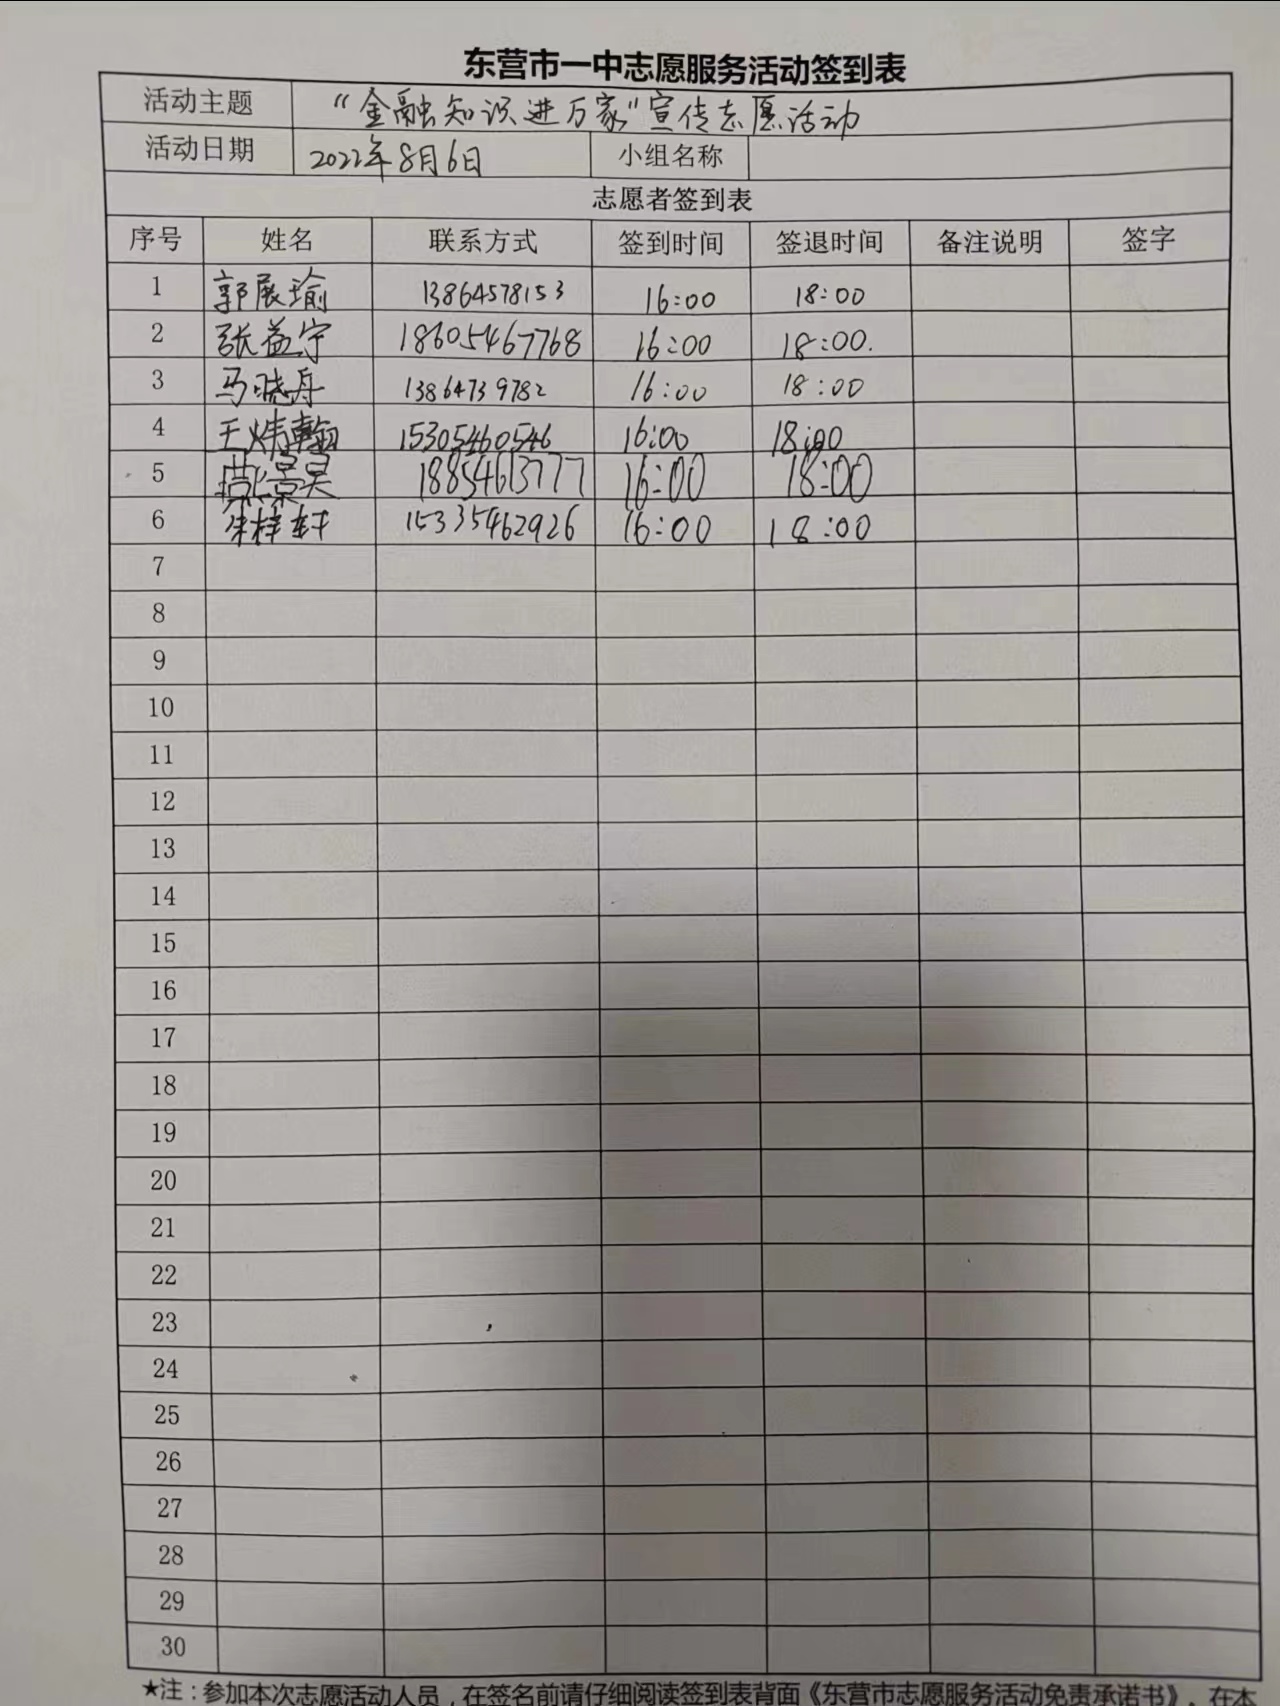 东营市一中志愿服务活动签到表
活动主题 “金融知识进万家”宣传志愿活动
活动日期 2022年8月6日 小组名称
志愿者签到表
序号 姓名 联系方式 签到时间 签退时间 备注说明 签字
1 郭展瑜 13864578153 16:00 18:00
2 张益宁 18605467768 16:00 18:00.
3 马晓舟 13864739782 16:00 18:00
4 王炜翰 15305460546 16:00 18:00
5 景昊 18854613777 16:00 18:00
6 朱梓轩 15335462926 16:00 18:00
7
8
9
10
11
12
13
14
15
16
17
18
19
20
21
22
23
24
25
26
27
28
29
30
★注：参加本次志愿活动人员，在签名前请仔细阅读签到表背面《东营市志愿服务活动免责承诺书》，在本